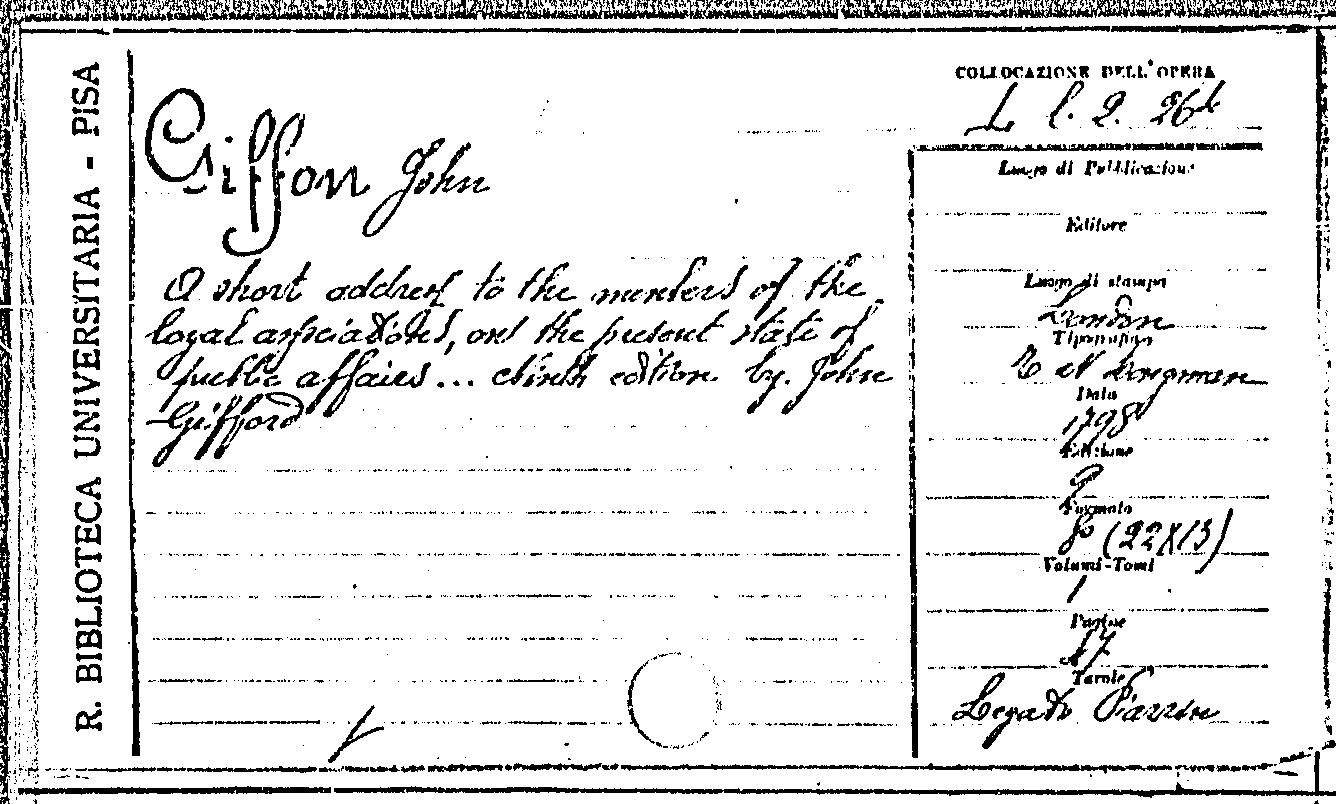 R. BIBLIOTECA UNIVERSITARIA - PISA
Giffon John
A short address to the members of the
loyal associations, on the present state of
public affairs... Ninth edition by. John
Gifford
COLLOCAZIONE DELL'OPERA
L l. 2. 26
Luogo di Pubblicazione
Editore
Luogo di stampa
London
Tipografo
Longman
Data
1798
Edizione
9
Formato
8° (22X13)
Volumi-Tomi
1
Pagine
Tavole
Legato